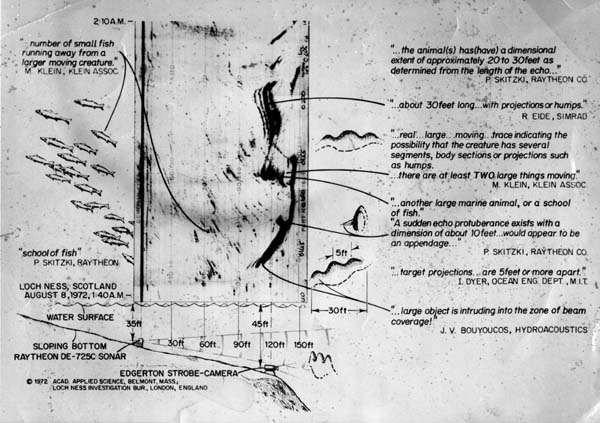 2:10 A.M.
"...number of small fish
running away from a
larger moving creature."
M. KLEIN, KLEIN ASSOC.
"school of fish"
P. SKITZKI, RAYTHEON
LOCH NESS, SCOTLAND
AUGUST 8, 1972, 1:40 A.M.
"...the animal(s) has(have) a dimensional
extent of approximately 20 to 30 feet as
determined from the length of the echo..."
P. SKITZKI, RAYTHEON CO.
"...about 30 feet long...with projections or humps."
R. EIDE, SIMRAD
"...real'...large...moving...trace indicating the
possibility that the creature has several
segments, body sections or projections such
as humps.
...there are at least TWO large things moving."
M. KLEIN, KLEIN ASSOC.
"...another large marine animal, or a school
of fish."
"A sudden echo protuberance exists with a
dimension of about 10 feet...would appear to be
an appendage..."
P. SKITZKI, RAYTHEON CO.
5ft
"...target projections...are 5 feet or more apart."
I. DYER, OCEAN ENG. DEPT., M.I.T.
30ft
"...large object is intruding into the zone of beam
coverage!"
J. V. BOUYOUCOS, HYDROACOUSTICS
WATER SURFACE
35ft
45ft
30ft 60ft 90ft 120ft 150ft
SLOPING BOTTOM
RAYTHEON DE-725C SONAR
EDGERTON STROBE-CAMERA
© 1972 ACAD. APPLIED SCIENCE, BELMONT, MASS.;
LOCH NESS INVESTIGATION BUR., LONDON, ENGLAND